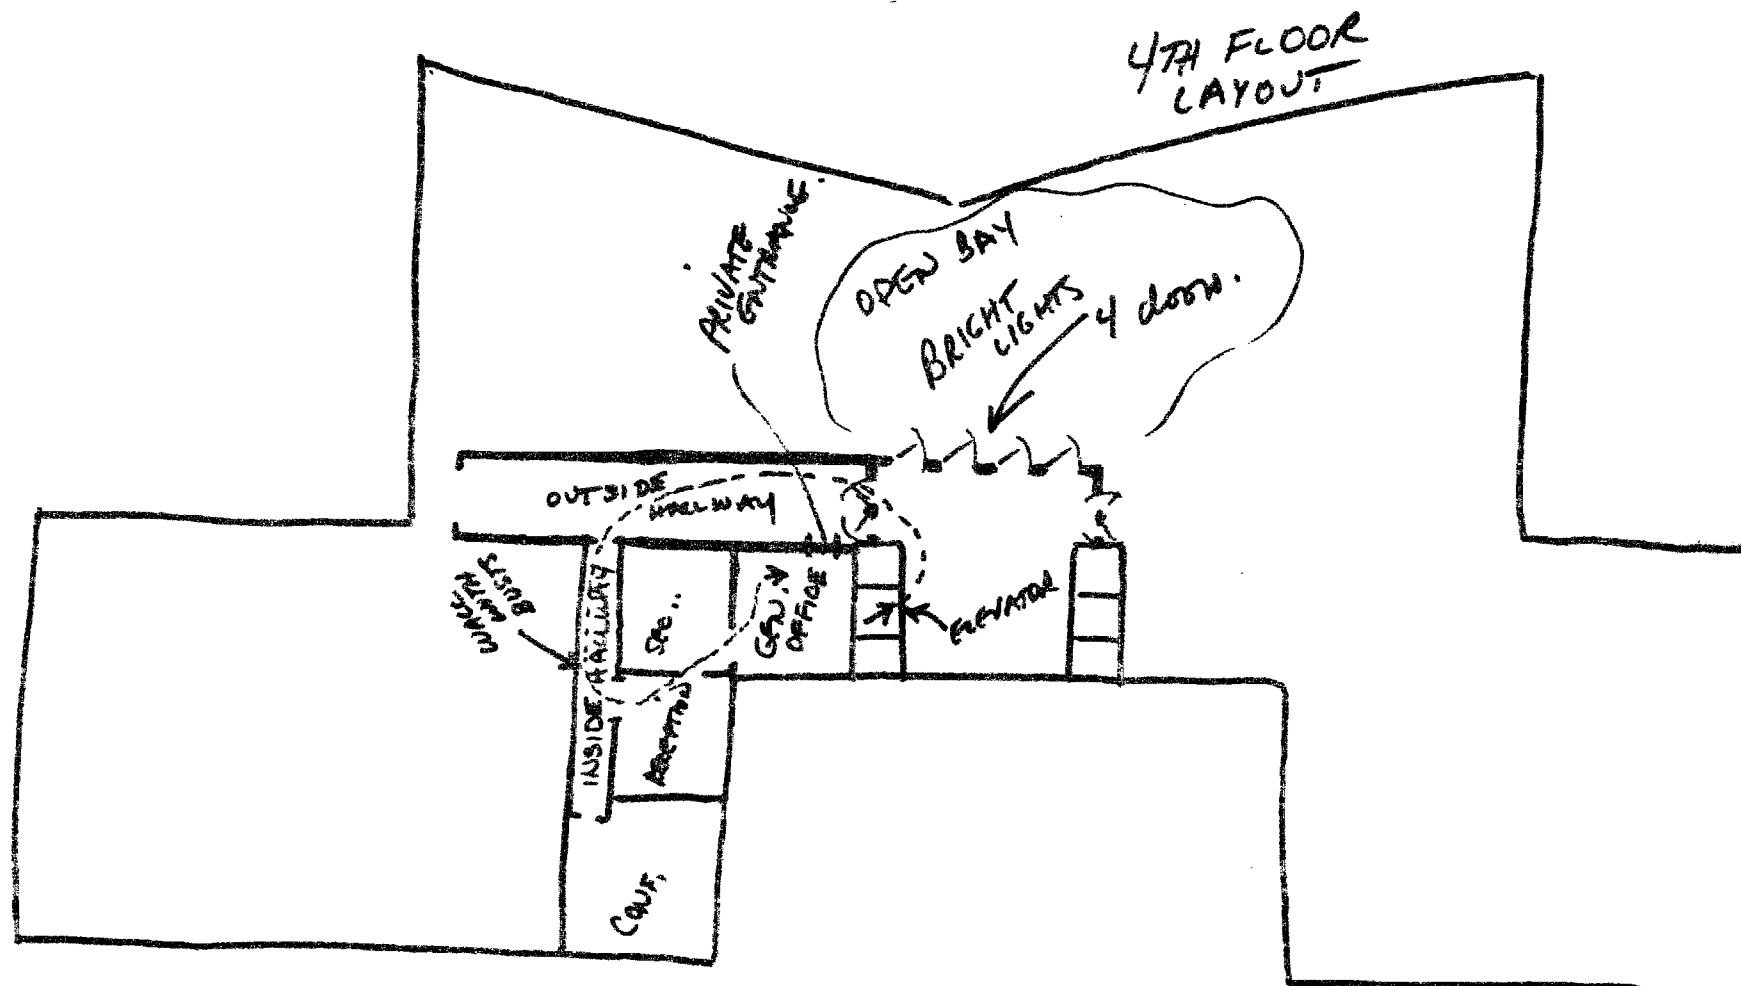 4TH FLOOR
LAYOUT
PRIVATE
ENTRANCE
OPEN BAY
BRIGHT
LIGHTS
4 doors.
OUTSIDE
HALLWAY
WALL
WITH
BUSTS
INSIDE HALLWAY
SEC..
GEN. V
OFFICE
ELEVATOR
RECEPTION
CONF.